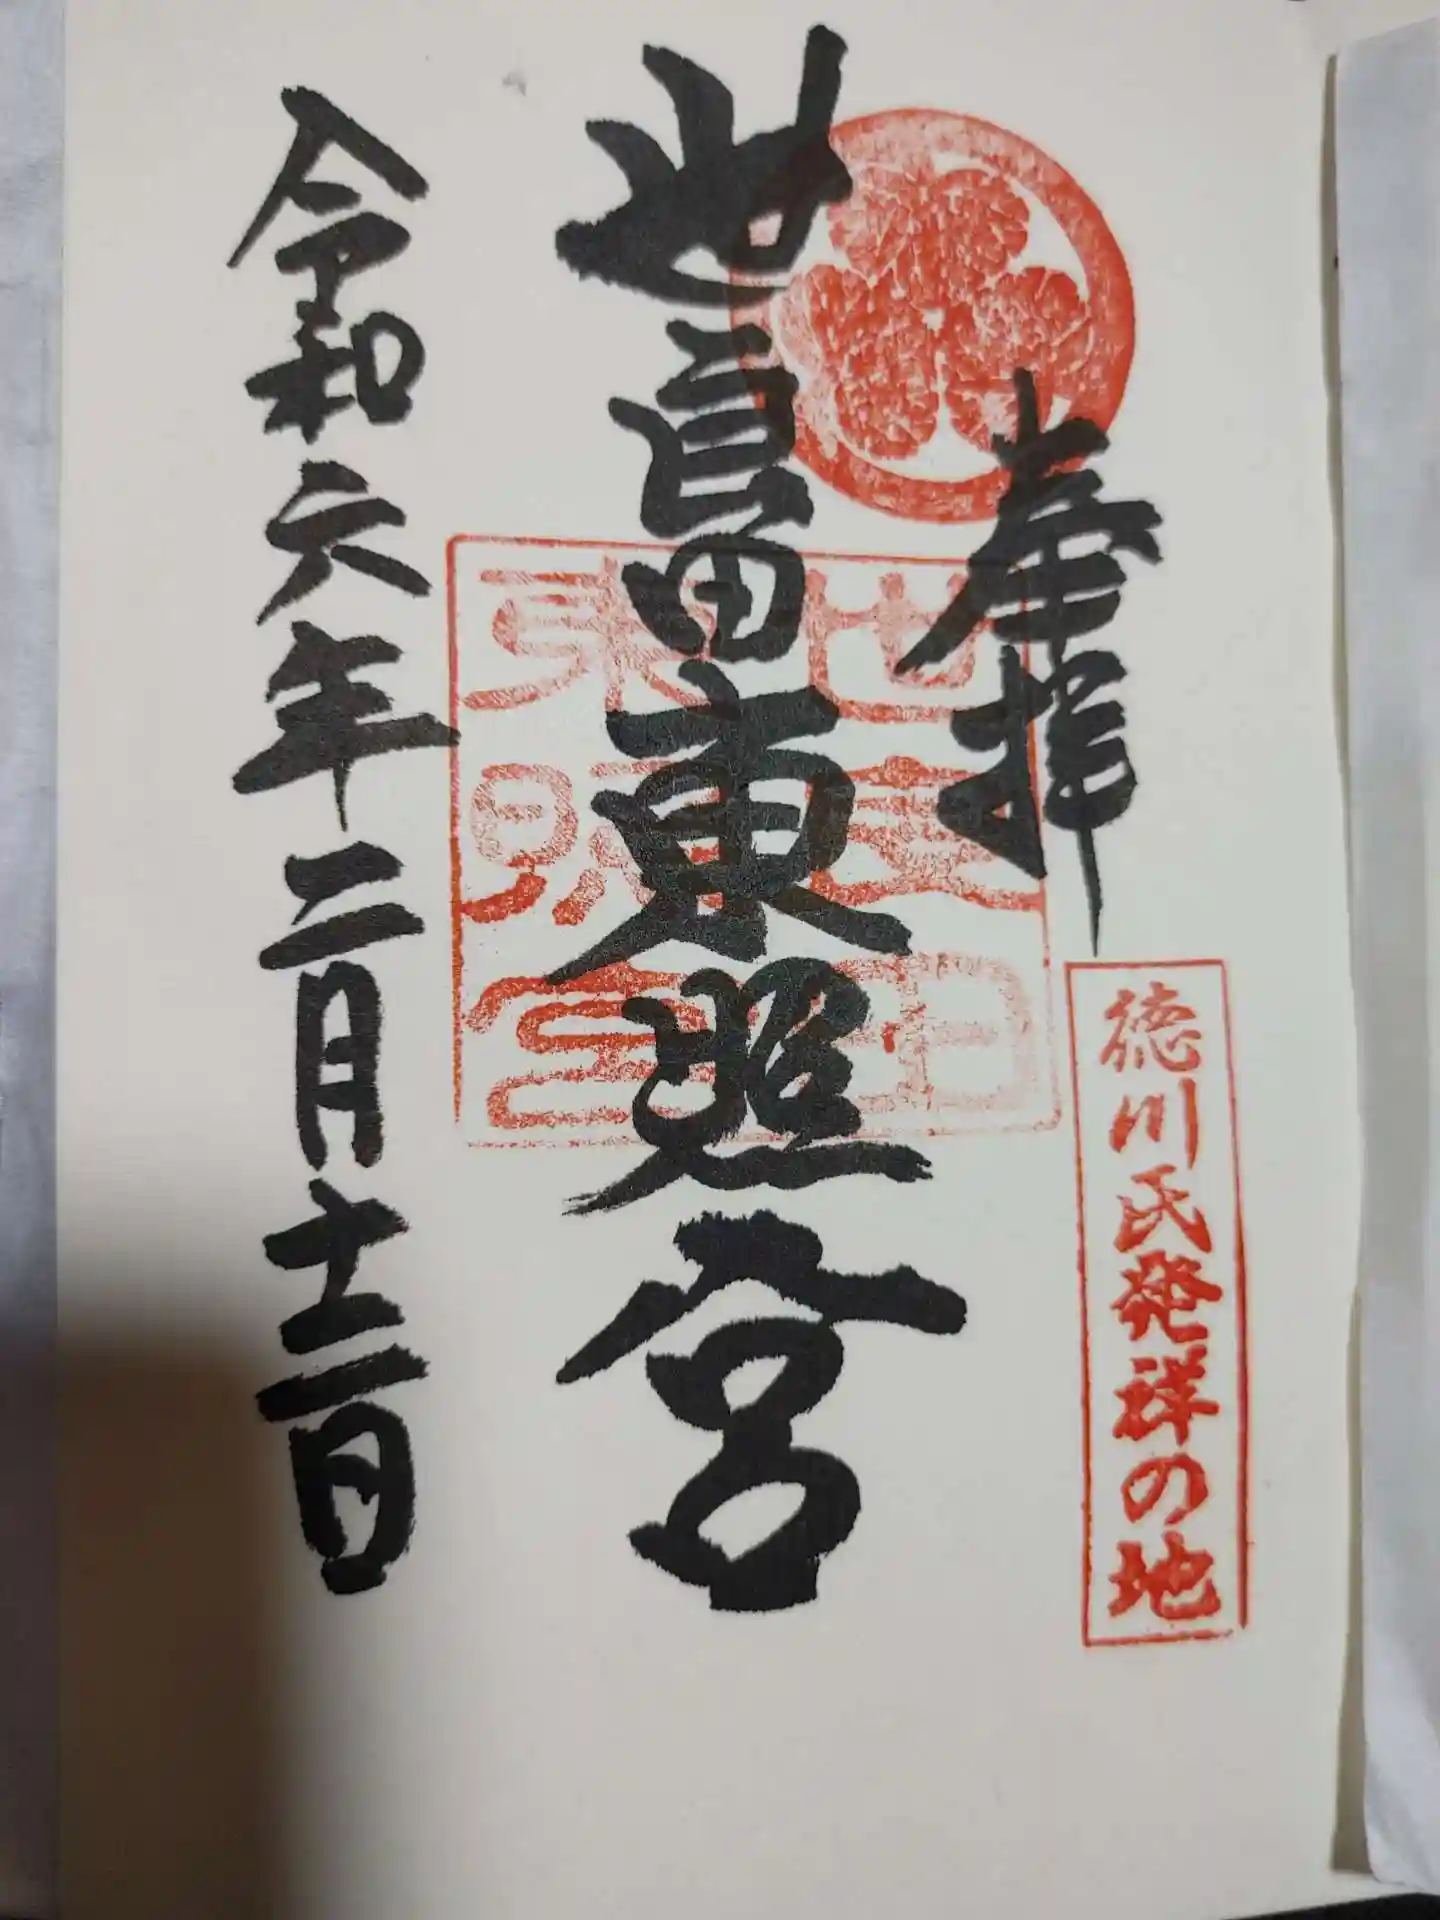 奉拝
徳川氏発祥の地
世良田東照宮
世良田
東照宮
令和六年二月十二日